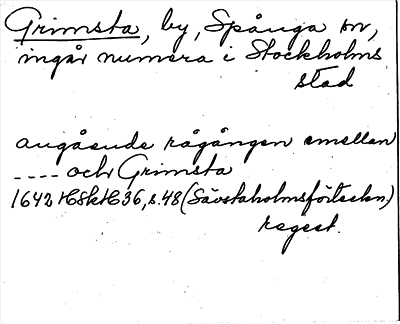 Grimsta, by, Spånga sn,
ingår numera i Stockholms
stad
angående rågången emellan
---- och Grimsta
1642 HSktH 36, s. 48 (Sävstaholmsförteckn.)
regest.